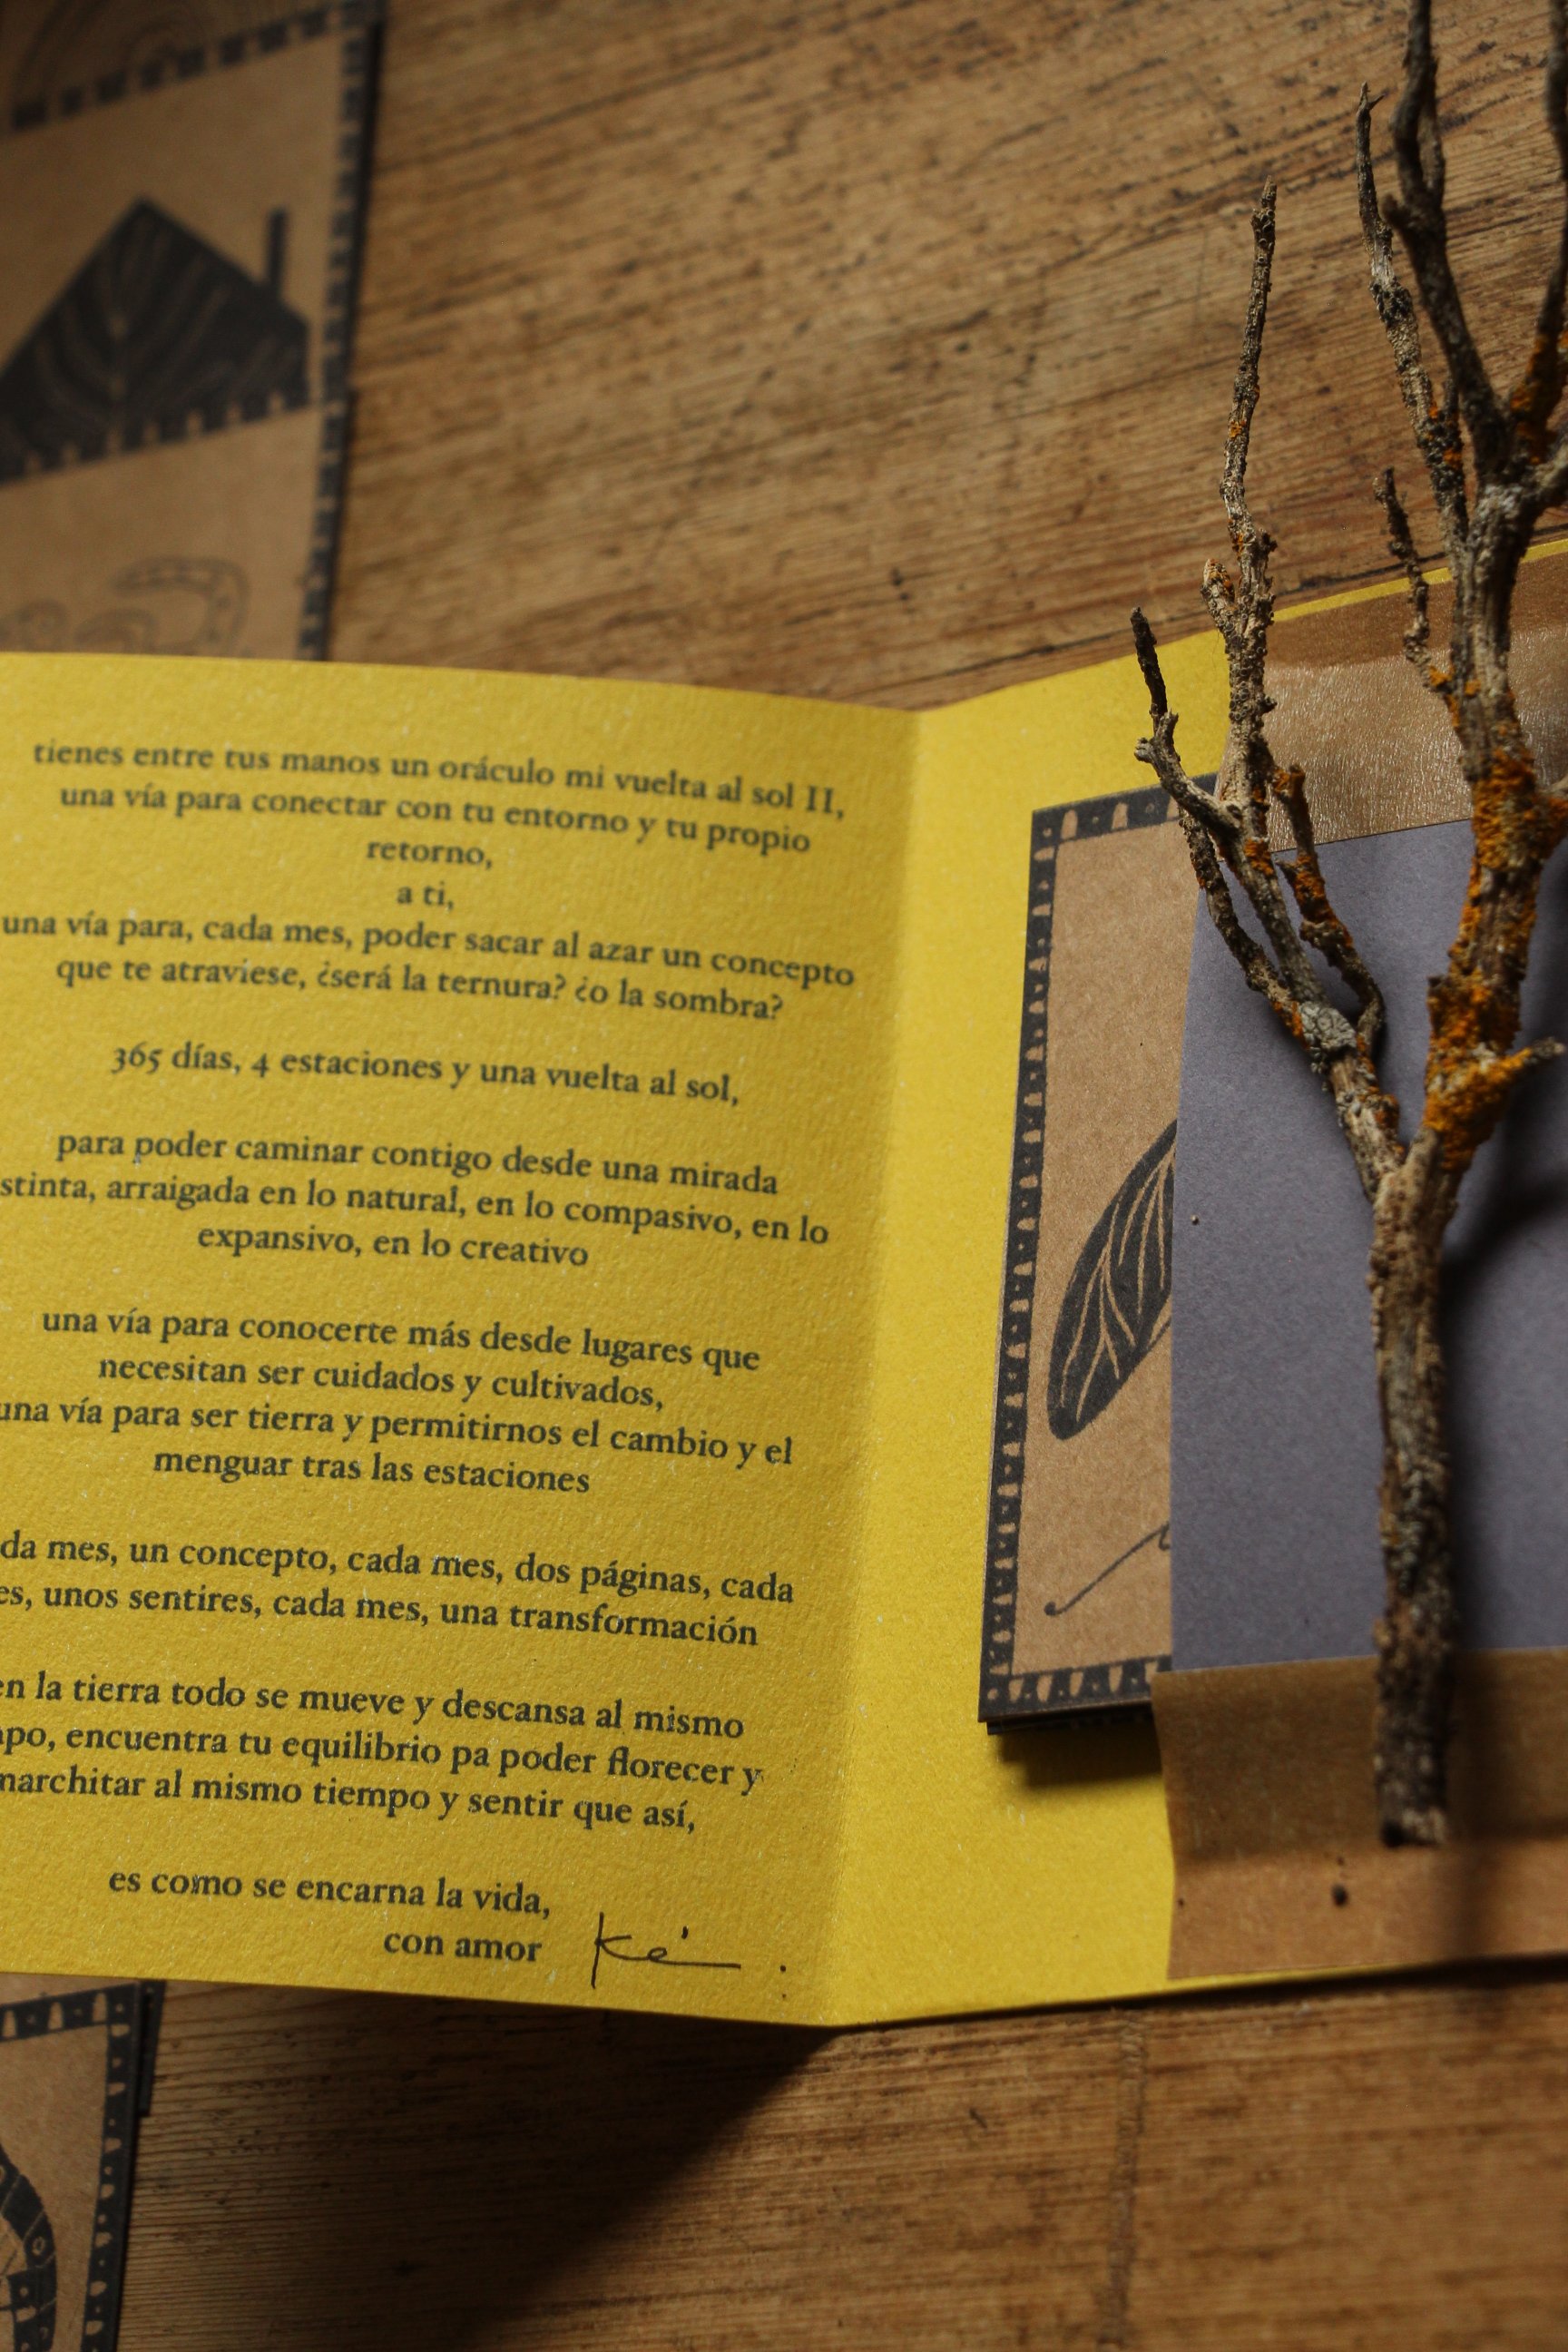 tienes entre tus manos un oráculo mi vuelta al sol II,
una vía para conectar con tu entorno y tu propio
retorno,
a ti,
una vía para, cada mes, poder sacar al azar un concepto
que te atraviese, ¿será la ternura? ¿o la sombra?
365 días, 4 estaciones y una vuelta al sol,
para poder caminar contigo desde una mirada
stinta, arraigada en lo natural, en lo compasivo, en lo
expansivo, en lo creativo
una vía para conocerte más desde lugares que
necesitan ser cuidados y cultivados,
una vía para ser tierra y permitirnos el cambio y el
menguar tras las estaciones
da mes, un concepto, cada mes, dos páginas, cada
es, unos sentires, cada mes, una transformación
en la tierra todo se mueve y descansa al mismo
po, encuentra tu equilibrio pa poder florecer y
marchitar al mismo tiempo y sentir que así,
es como se encarna la vida,
con amor Ké.